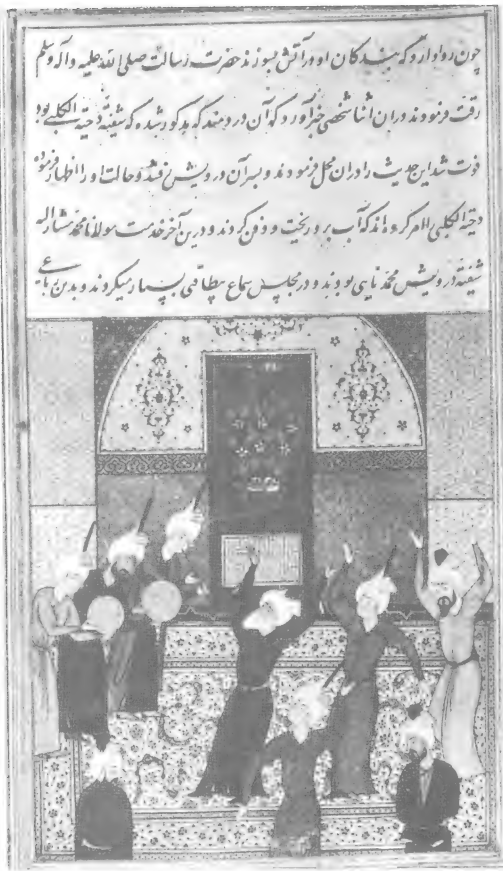 چون روا دارد که بندگان او در آتش بسوزند حضرت رسالت صلی الله علیه وآله وسلم
رقت فرمودند در آن اثنا شخصی خبر آورد که آن دردمند که مذکور شده که شیفته دحیة الکلبی بود
فوت شد این حدیث را در آن محل فرمودند و بسر آن درویش رفتند و حالت او را اظهار فرموده
دحیة الکلبی را امر کرده اند که آب برو ریخت و دفن کردند و درین آخر خدمت مولانا محمد مشار الیه
شیفته درویش محمد نایی بودند و در مجلس سماع بیطاقتی بسیار میکردند و بدین رباعی